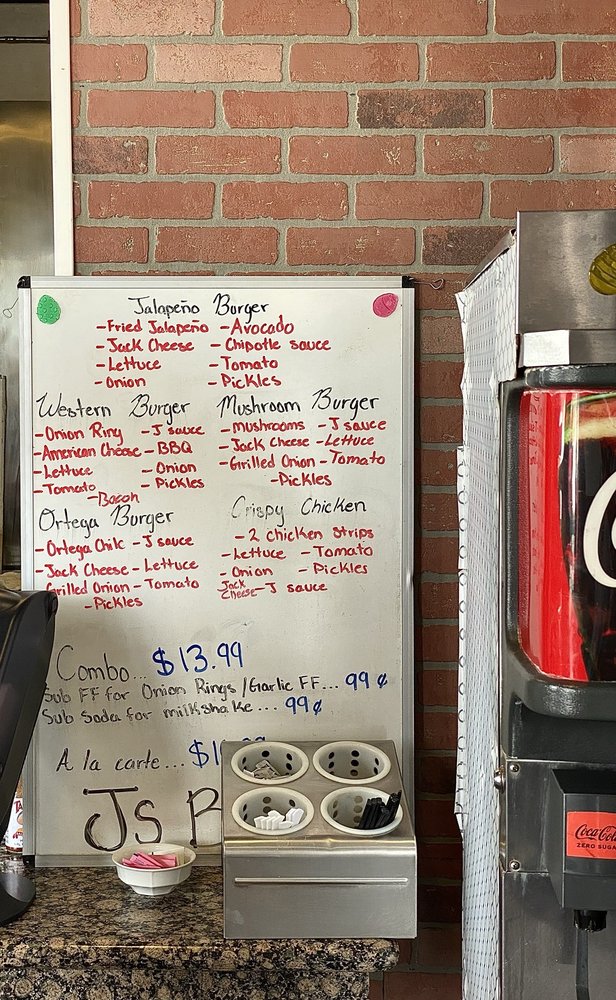 Jalapeño Burger
-Fried Jalapeño -Avocado
-Jack Cheese -Chipotle sauce
-Lettuce -Tomato
-Onion -Pickles
Western Burger
-Onion Ring -J sauce
-American Cheese -BBQ
-Lettuce -Onion
-Tomato -Pickles
-Bacon
Mushroom Burger
-mushrooms -J sauce
-Jack Cheese -Lettuce
-Grilled Onion -Tomato
-Pickles
Ortega Burger
-Ortega Chile -J sauce
-Jack Cheese -Lettuce
-Grilled Onion -Tomato
-Pickles
Crispy Chicken
-2 chicken strips
-Lettuce -Tomato
-Onion -Pickles
-Jack Cheese -J sauce
Combo... $13.99
Sub FF for Onion Rings/Garlic FF... 99¢
Sub Soda for milkshake... 99¢
A la carte...
JS
Coca-Cola
ZERO SUGAR